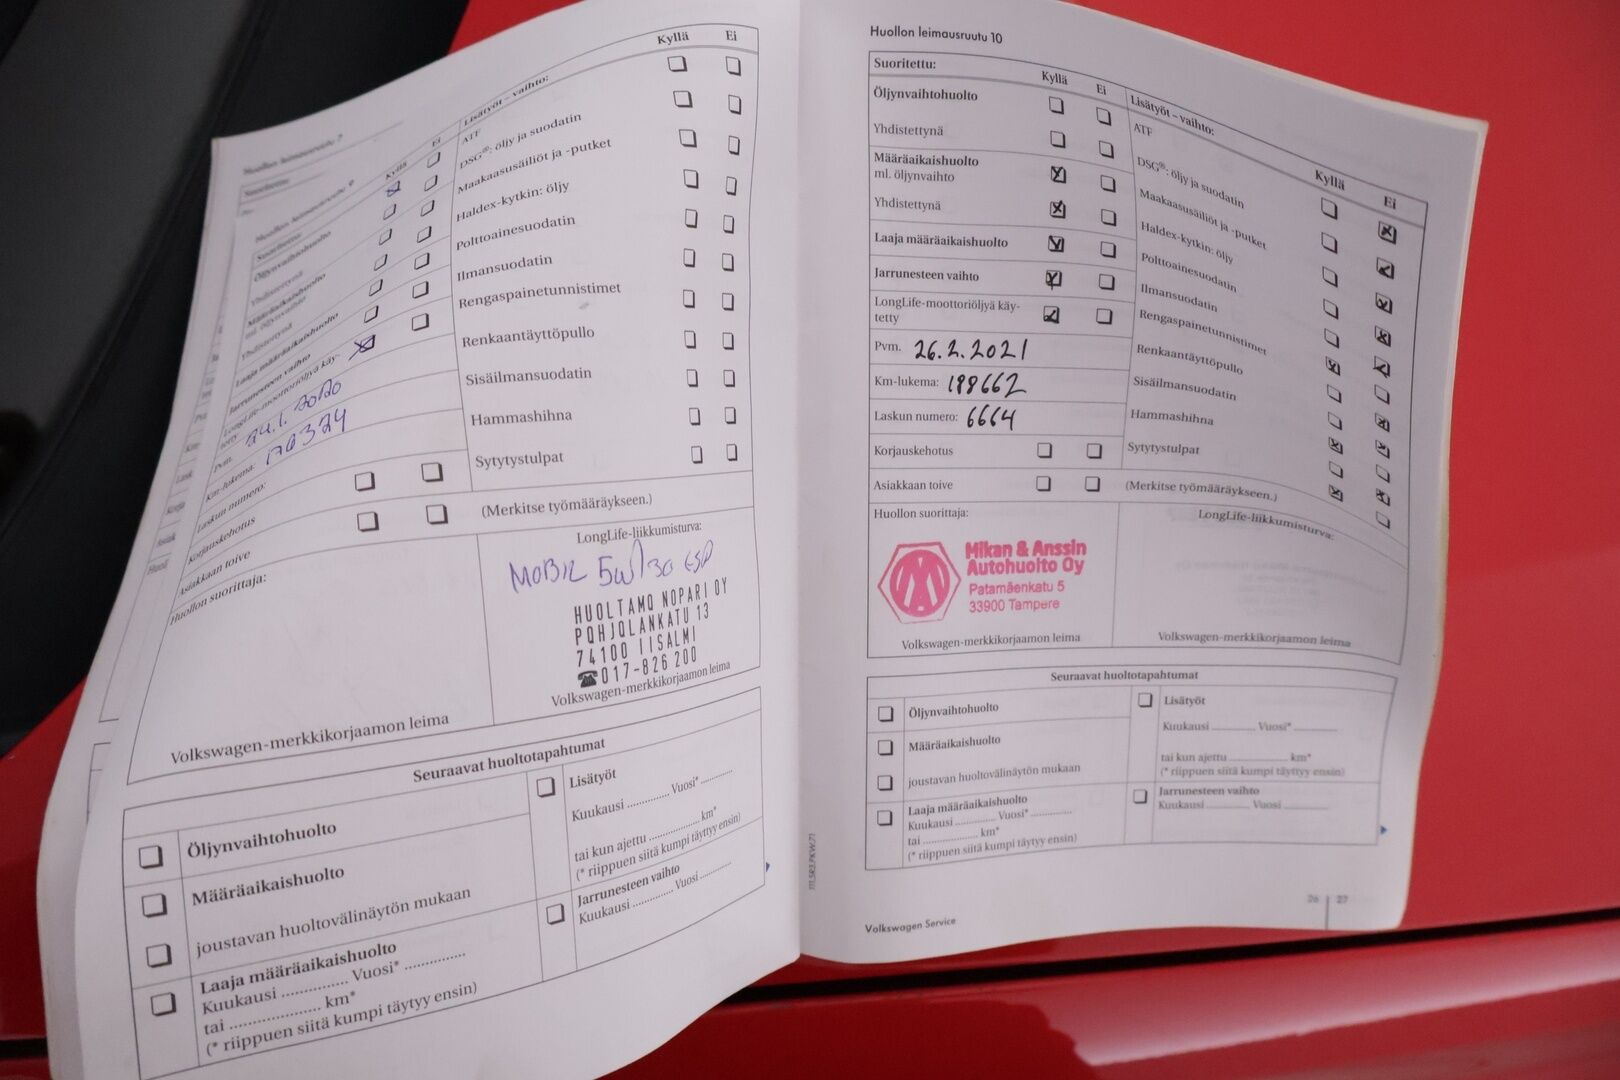 Huollon leimausruutu 7
Suoritettu:
Pvm.
Huollon leimausruutu 9
Suoritettu:
Kyllä Ei
Öljynvaihtohuolto
Yhdistettynä
Määräaikaishuolto
ml. öljynvaihto
Yhdistettynä
Laaja määräaikaishuolto
Jarrunesteen vaihto
LongLife-moottoriöljyä käy-
tetty
Pvm. 24.1.2020
Km-lukema: 176324
Laskun numero:
Korjauskehotus
Asiakkaan toive
(Merkitse työmääräykseen.)
Lisätyöt – vaihto:
Kyllä Ei
ATF
DSG®: öljy ja suodatin
Maakaasusäiliöt ja -putket
Haldex-kytkin: öljy
Polttoainesuodatin
Ilmansuodatin
Rengaspainetunnistimet
Renkaantäyttöpullo
Sisäilmansuodatin
Hammashihna
Sytytystulpat
Huollon suorittaja:
Volkswagen-merkkikorjaamon leima
LongLife-liikkumisturva:
MOBIL 5W/30 ESP
HUOLTAMO NOPARI OY
POHJOLANKATU 13
74100 IISALMI
☎017-826 200
Volkswagen-merkkikorjaamon leima
Seuraavat huoltotapahtumat
Öljynvaihtohuolto
Määräaikaishuolto
joustavan huoltovälinäytön mukaan
Laaja määräaikaishuolto
Kuukausi ............... Vuosi* ...............
tai ..................... km*
(* riippuen siitä kumpi täytyy ensin)
Lisätyöt
Kuukausi ............... Vuosi* ...............
tai kun ajettu ..................... km*
(* riippuen siitä kumpi täytyy ensin)
Jarrunesteen vaihto
Kuukausi ............... Vuosi ...............
Huollon leimausruutu 10
Suoritettu:
Kyllä Ei
Öljynvaihtohuolto
Yhdistettynä
Määräaikaishuolto
ml. öljynvaihto
Yhdistettynä
Laaja määräaikaishuolto
Jarrunesteen vaihto
LongLife-moottoriöljyä käy-
tetty
Pvm. 26.2.2021
Km-lukema: 188662
Laskun numero: 6664
Korjauskehotus
Asiakkaan toive
(Merkitse työmääräykseen.)
Lisätyöt – vaihto:
Kyllä Ei
ATF
DSG®: öljy ja suodatin
Maakaasusäiliöt ja -putket
Haldex-kytkin: öljy
Polttoainesuodatin
Ilmansuodatin
Rengaspainetunnistimet
Renkaantäyttöpullo
Sisäilmansuodatin
Hammashihna
Sytytystulpat
Huollon suorittaja:
Mikan & Anssin
Autohuolto Oy
Patamäenkatu 5
33900 Tampere
Volkswagen-merkkikorjaamon leima
LongLife-liikkumisturva:
Volkswagen-merkkikorjaamon leima
Seuraavat huoltotapahtumat
Öljynvaihtohuolto
Määräaikaishuolto
joustavan huoltovälinäytön mukaan
Laaja määräaikaishuolto
Kuukausi ............... Vuosi* ...............
tai ..................... km*
(* riippuen siitä kumpi täytyy ensin)
Lisätyöt
Kuukausi ............... Vuosi* ...............
tai kun ajettu ..................... km*
(* riippuen siitä kumpi täytyy ensin)
Jarrunesteen vaihto
Kuukausi ............... Vuosi ...............
Volkswagen Service
26 27